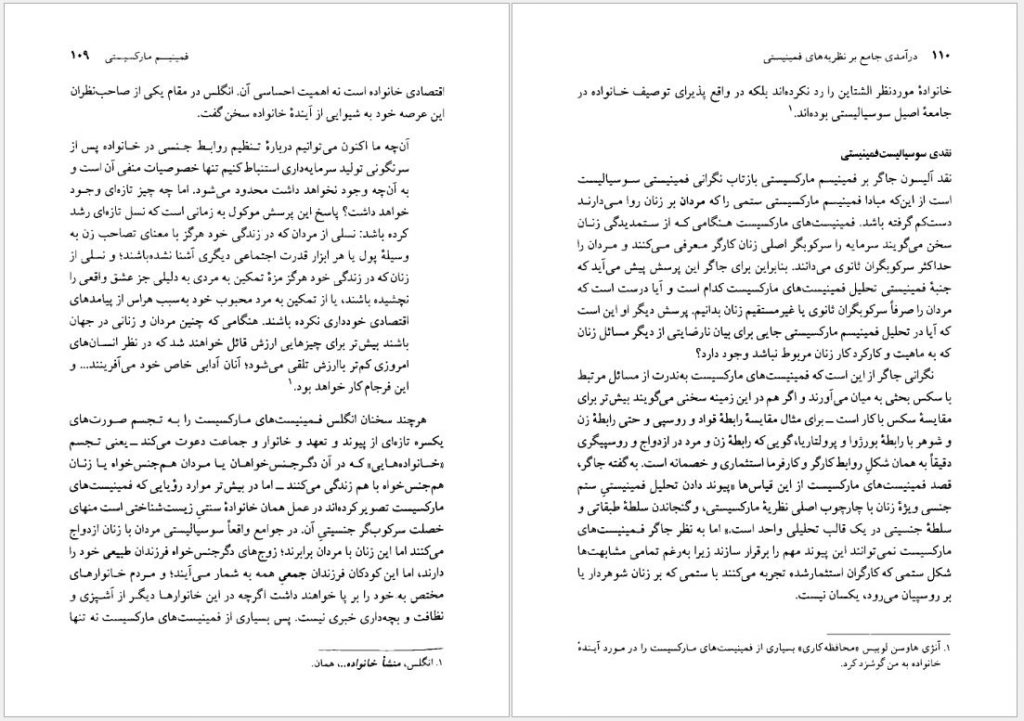 فمینیسم مارکسیستی ۱۰۹
اقتصادی خانواده است نه اهمیت احساسی آن. انگلس در مقام یکی از صاحب‌نظران
این عرصه خود به شیوایی از آیندهٔ خانواده سخن گفت.
آن‌چه ما اکنون می‌توانیم دربارهٔ تنظیم روابط جنسی در خانواده پس از
سرنگونی تولید سرمایه‌داری استنباط کنیم تنها خصوصیات منفی آن است و
به آن‌چه وجود نخواهد داشت محدود می‌شود. اما چه چیز تازه‌ای وجود
خواهد داشت؟ پاسخ این پرسش موکول به زمانی است که نسل تازه‌ای رشد
کرده باشد: نسلی از مردان که در زندگی خود هرگز با معنای تصاحب زن به
وسیلهٔ پول یا هر ابزار قدرت اجتماعی دیگری آشنا نشده‌باشند؛ و نسلی از
زنان که در زندگی خود هرگز مزهٔ تمکین به مردی به دلیلی جز عشق واقعی را
نچشیده باشند، یا از تمکین به مرد محبوب خود به‌سبب هراس از پیامدهای
اقتصادی خودداری نکرده باشند. هنگامی که چنین مردان و زنانی در جهان
باشند بیش‌تر برای چیزهایی ارزش قائل خواهند شد که در نظر انسان‌های
امروزی کم‌تر باارزش تلقی می‌شود؛ آنان آدابی خاص خود می‌آفرینند... و
این فرجام کار خواهد بود.۱
هرچند سخنان انگلس فمینیست‌های مارکسیست را به تجسم صورت‌های
یکسره تازه‌ای از پیوند و تعهد و خانوار و جماعت دعوت می‌کند ــ یعنی تجسم
«خانواده‌هایی» که در آن دگرجنس‌خواهان یا مردان هم‌جنس‌خواه یا زنان
هم‌جنس‌خواه با هم زندگی می‌کنند ــ اما در بیش‌تر موارد رؤیایی که فمینیست‌های
مارکسیست تصویر کرده‌اند در عمل همان خانوادهٔ سنتیِ زیست‌شناختی است منهای
خصلت سرکوب‌گر جنسیتیِ آن. در جوامع واقعاً سوسیالیستی مردان با زنان ازدواج
می‌کنند اما این زنان با مردان برابرند؛ زوج‌های دگرجنس‌خواه فرزندان طبیعی خود را
دارند، اما این کودکان فرزندان جمعیِ همه به شمار می‌آیند؛ و مردم خانوارهای
مختص به خود را بر پا خواهند داشت اگرچه در این خانوارها دیگر از آشپزی و
نظافت و بچه‌داری خبری نیست. پس بسیاری از فمینیست‌های مارکسیست نه تنها
۱. انگلس، منشأ خانواده...، همان.
۱۱۰ درآمدی جامع بر نظریه‌های فمینیستی
خانوادهٔ موردنظر الشتاین را رد نکرده‌اند بلکه در واقع پذیرای توصیف خانواده در
جامعهٔ اصیل سوسیالیستی بوده‌اند.۱
نقدی سوسیالیست‌فمینیستی
نقد آلیسون جاگر بر فمینیسم مارکسیستی بازتاب نگرانی فمینیستی سوسیالیست
است از این‌که مبادا فمینیسم مارکسیستی ستمی را که مردان بر زنان روا می‌دارند
دست‌کم گرفته باشد. فمینیست‌های مارکسیست هنگامی که از ستمدیدگی زنان
سخن می‌گویند سرمایه را سرکوبگر اصلی زنان کارگر معرفی می‌کنند و مردان را
حداکثر سرکوبگران ثانوی می‌دانند. بنابراین برای جاگر این پرسش پیش می‌آید که
جنبهٔ فمینیستی تحلیل فمینیست‌های مارکسیست کدام است و آیا درست است که
مردان را صرفاً سرکوبگران ثانوی یا غیرمستقیم زنان بدانیم. پرسش دیگر او این است
که آیا در تحلیل فمینیسم مارکسیستی جایی برای بیان نارضایتی از دیگر مسائل زنان
که به ماهیت و کارکرد کار زنان مربوط نباشد وجود دارد؟
نگرانی جاگر از این است که فمینیست‌های مارکسیست به‌ندرت از مسائل مرتبط
با سکس بحثی به میان می‌آورند و اگر هم در این زمینه سخنی می‌گویند بیش‌تر برای
مقایسهٔ سکس با کار است ــ برای مثال مقایسهٔ رابطهٔ قواد و روسپی و حتی رابطهٔ زن
و شوهر با رابطهٔ بورژوا و پرولتاریا، گویی که رابطهٔ زن و مرد در ازدواج و روسپیگری
دقیقاً به همان شکلِ روابط کارگر و کارفرما استثماری و خصمانه است. به گفته جاگر،
قصد فمینیست‌های مارکسیست از این قیاس‌ها «پیوند دادن تحلیل فمینیستیِ ستم
جنسی ویژهٔ زنان با چارچوب اصلی نظریهٔ مارکسیستی، و گنجاندن سلطهٔ طبقاتی و
سلطهٔ جنسیتی در یک قالب تحلیلی واحد است.» اما به نظر جاگر فمینیست‌های
مارکسیست نمی‌توانند این پیوند مهم را برقرار سازند زیرا به‌رغم تمامی مشابهت‌ها
شکل ستمی که کارگران استثمارشده تجربه می‌کنند با ستمی که بر زنان شوهردار یا
بر روسپیان می‌رود، یکسان نیست.
۱. آنژی هاوسن لوییس «محافظه‌کاری» بسیاری از فمینیست‌های مارکسیست را در مورد آیندهٔ
خانواده به من گوشزد کرد.